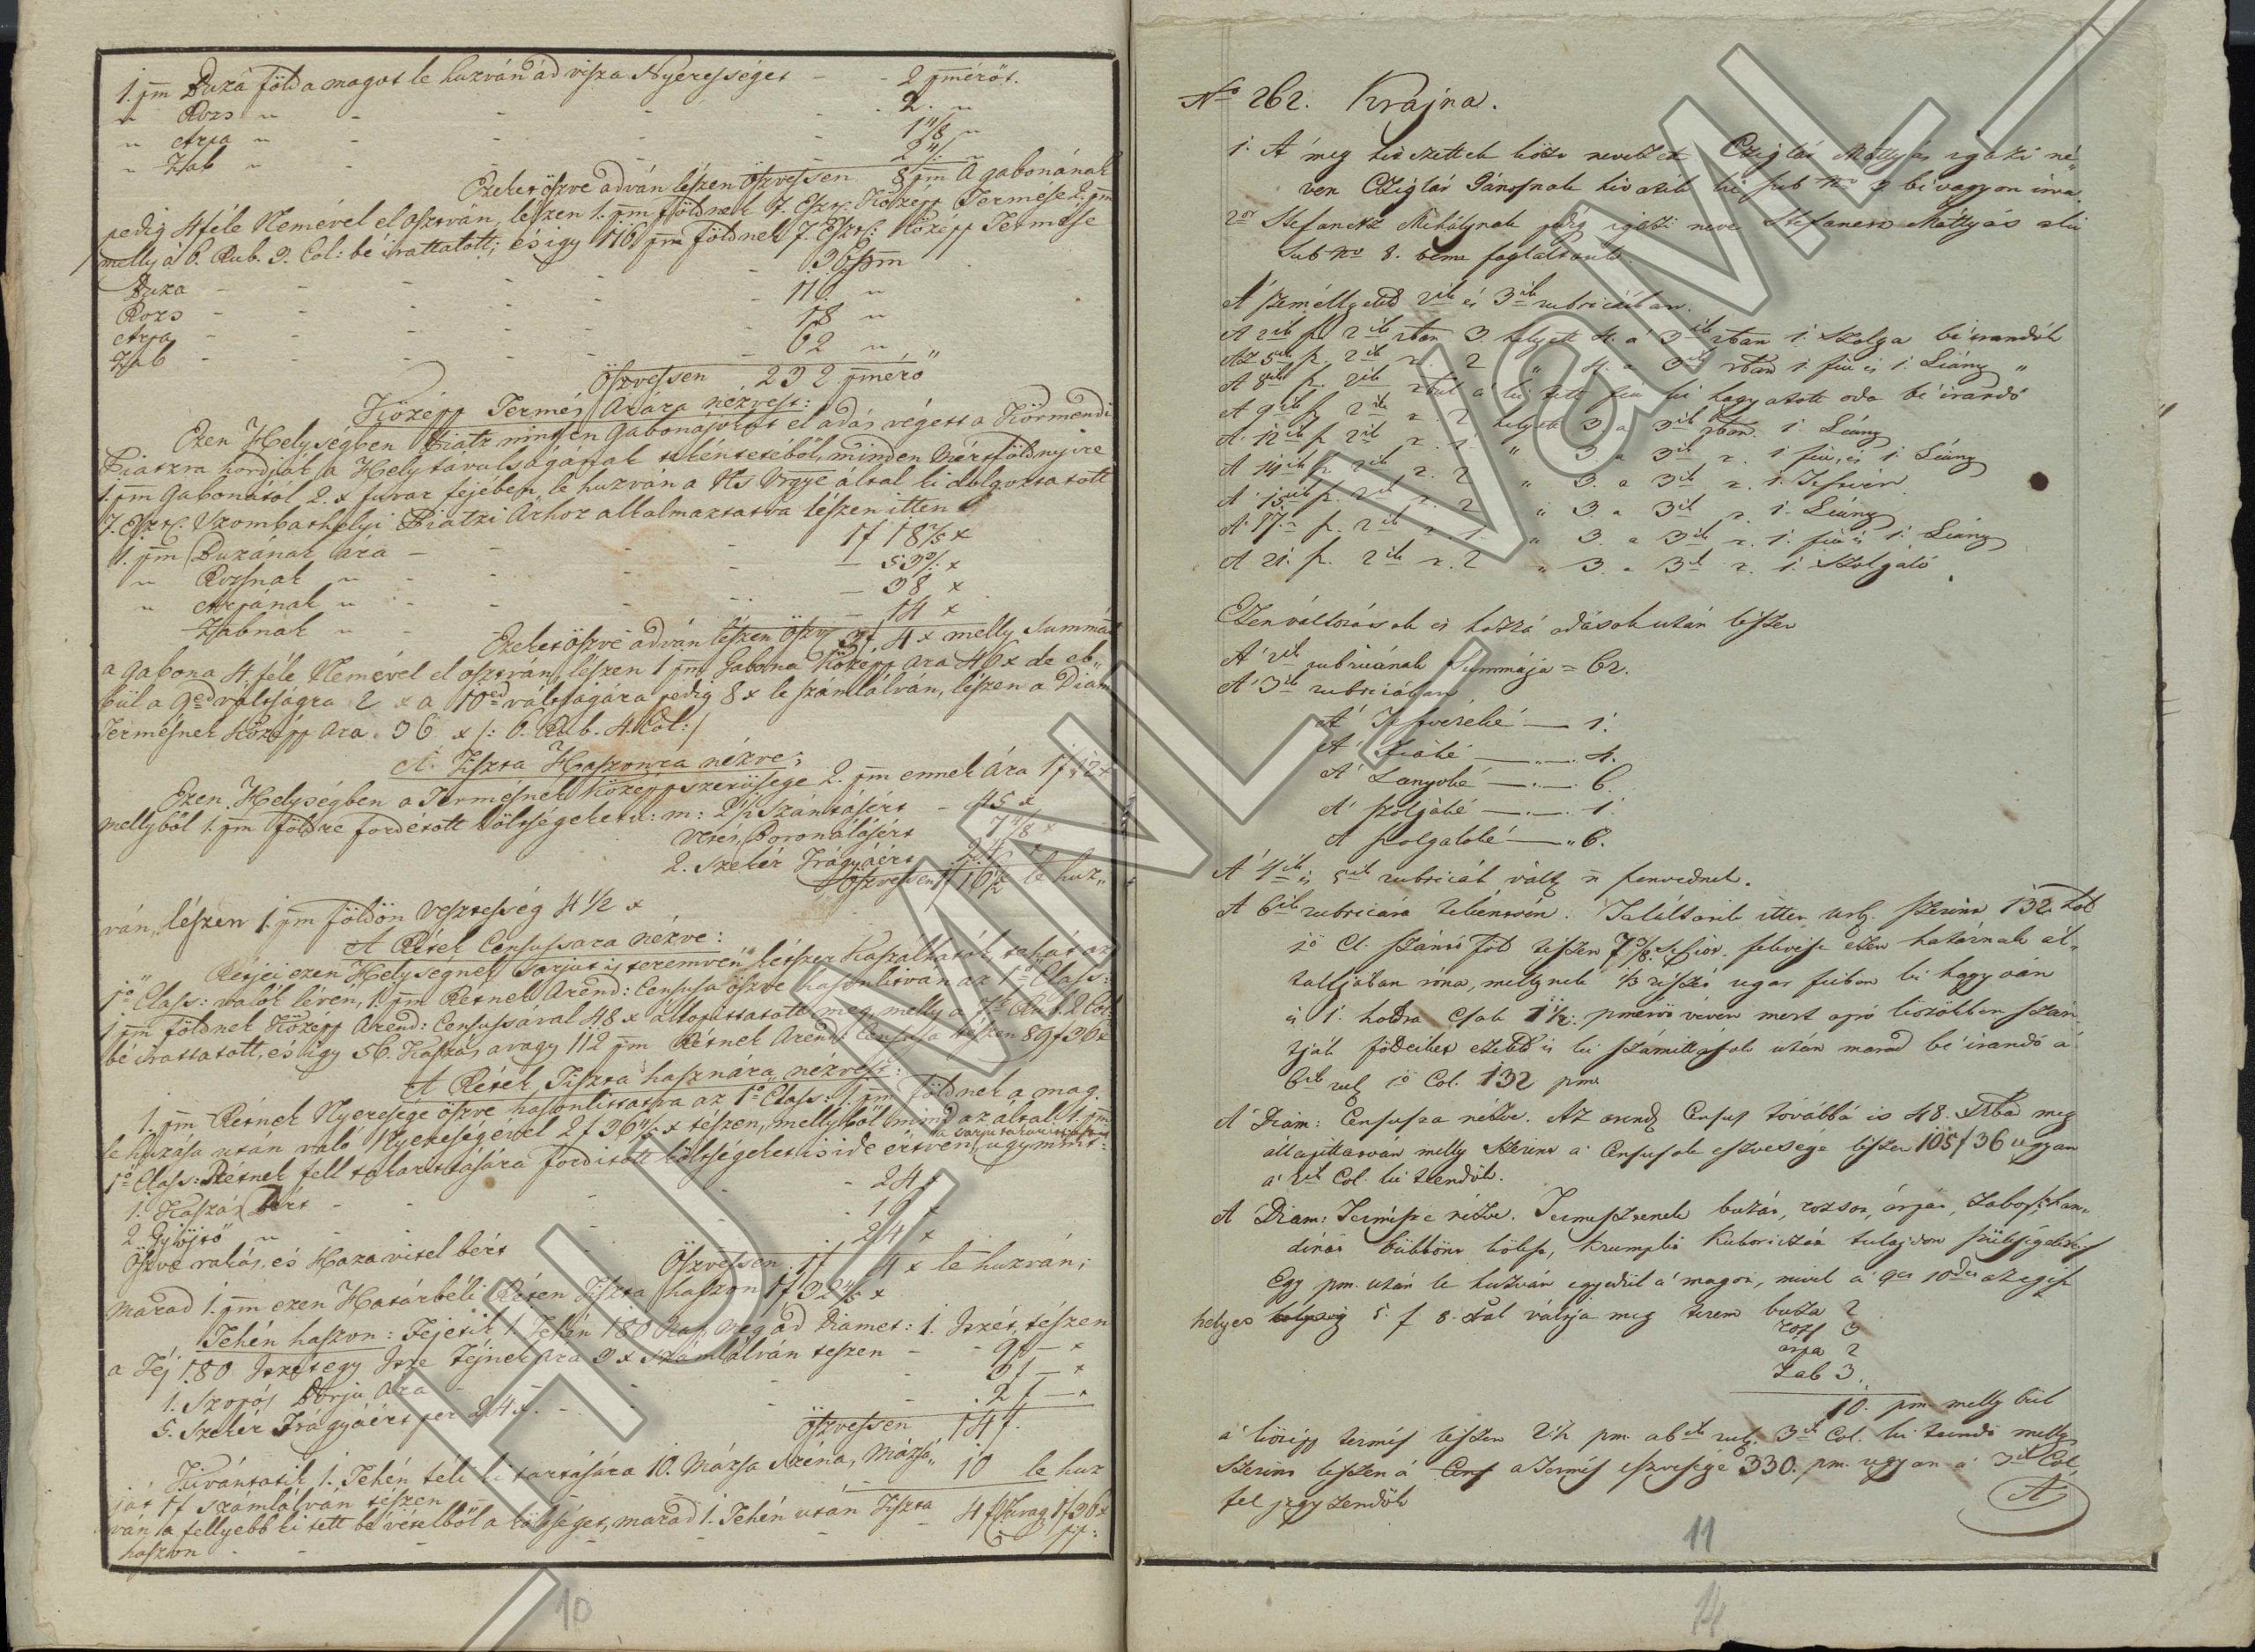 1. pm Buza föld a magot le huzván ád visza Nyereséget - - 2 pmérőt.
" Rozs " - - - - 2. "
" Arpa " - - - - 1 4/8 "
" Zab " - - - - 2 4/8 "
Ezeket öszve adván lészen öszvessen 8 pm A gabonának
pedig 4 féle Nemével el osztván, lészen 1. pm földnek 7. Eszt: Középp Termése 2. pm
melly á 6. Rub. 3. Col: bé irattatott; és igy 116. pm földnek 7. Eszt: Középp Termése
Buza - - - - 36 pm
Rozs - - - - 116 "
Arpa - - - - 18 "
Zab - - - - 62 "
Öszvessen 232 pmérő
Középp Termés Árára nézvést:
Ezen Helységben Piatz nintsen Gabonájokat el adás végett a Körmendi
Piaczra hordják, a Hely távulságának tekéntetéből, minden Mértföldnyire
1. pm gabonától 2. x fuvar fejében le huzván a Ns Vrgye által ki dolgoztatott
7. Eszt: Szombathelyi Piatzi Arhoz alkalmaztatva lészen itten
1. pm Buzának ára - - - 1 f 18 x
" Rozsnak " - - - 53 x
" Arpának " - - - 38 x
Zabnak " - - - 14 x
Ezeket öszve adván lészen öszv 3 f 4 x melly Summát
a gabona 4. féle Nemével el osztván, lészen 1 pm Gabona Középp ára 46 x de eb„
bül a 9ed váltságra 2 x a 10ed váltságára pedig 8 x le számlálván, lészen a Diam
Termésnek Középp Ara . 36 x /: 6. Rub. 4. Col: /
A. Tiszta Haszonra nézve:
Ezen Helységben a Termésnek középpszerüsége 2. pm ennek Ára 1 f 12 x
mellyből 1. pm földre fordétott költségeket u: m: 2 1/2 szántásért - 45 x
Vetés, Boronálásért 7 4/8 x
2. szekér Trágyáért 24 x
Öszvessen 1 f 16 1/2 x le huz„
ván, lészen 1. pm földön Vesztesség 4 1/2 x
A Rétek Censussara nézve:
Rétjei ezen Helységnek Sarjut is teremvén, kétszer Kaszáltatók, tehát az
1ő Class: valók lévén, 1. pm Rétnek Arend: Censusa öszve hasonlitván az 1ő Class:
1 pm földnek Középp Arend: Censussával 48 x állapittatott meg, melly a 7ik Rub. 2 Col:
bé irattatott, és így 56. Kaszás avagy 112 pm Rétnek Arend: Censusa tészen 89 f 36 x
A Rétek Tiszta hasznára nézvést:
1. pm Rétnek Nyeresége öszve hasonlittatva az 1ő Class: 1. pm földnek a mag.
le huzása után való Nyereségével 2 f 36 x tészen, mellyből mind az által 1. pm
1ő Class: Rétnek fell takarittására fordított költségeket is ide értvén ugymint:
1. Kaszás Bért - - - - 24 x
2. Gyüjtő " - - - - 16 x
Öszve rakás, és Haza vitel bért - - 24 x
Öszvessen 1 f 4 x le huzván,
marad 1. pm ezen Határbéli Réten Tiszta haszon 1 f 32 x
Tehén haszon: Fejetik 1. Tehén 180 Nap, meg ád Diamet: 1. Iczét, tészen
a Téj 180 Iczét egy Icze Téjnek Ara 3 x számlálván teszen - - 9 f — x
1. Szopós Borju Ara - - - - 3 f — x
5. Szekér Trágyáért per 24 x. - - - - 2 f — x
Öszvessen 14 f.
Kivántatik 1. Tehén téli ki tartására 10. Mázsa Széna, Mázsá„
ját 1 f számlálván tészen - - - 10 le huz
ván a fellyebb ki tett bé vételből a költséget, marad 1. Tehén után Tiszta 4 f
haszon - - - -
10
No 262. Krajna.
1. A' meg kérdezettek közt nevezett Cziglár Mátyás igazi né„
ven Cziglár Jánosnak hivatik ki sub No 3 bé vagyon irva
2or Stefanecz Mihálynak pedig igazi neve Stefanecz Mátyás ki
Sub No 8. béne foglaltatik.
A' személlyeket 2ik és 3ik rubricában.
A 2ik p. 2ik rban 3. helyett 4. a' 3ik rban 1. Szolga bé irandók
Az 5ik p. 2ik r. 2 " 4. a 3ik rban 1 fiu és 1. Liány "
A 8ik p. 2ik rbul a' ki tett fiu ki hagyatott oda bé irandó
A 9ik p. 2ik r. 2 helyett 3 a 3ik rban. 1. Leány
A' 12ik p. 2ik r. 1 " 3 a 3ik r. 1 fiu, és 1. Leány
A 14ik p. 2ik r. 2 " 3. a 3ik r. 1. Testvér
A 15ik p. 2ik r. 2 " 3. a 3ik r. 1. Leány
A 17. p. 2ik r. 1. " 3. a 3ik r. 1. fiu és 1. Leány
A 21. p. 2ik r. 2 " 3. a 3ik r. 1. Szolgáló
Ezen változások és hozzá adások után lészen
A' 2ik rubricának Summája = 62.
A' 3ik rubricában
A' Testvéreké — 1.
A' Fiaké — 4.
A' Lanyoké — 6.
A' szolgáké — 1.
A szolgálóké — 6.
A' 4ik és 5ik rubricák vált n szenvednek.
A 6ik rubricára tekéntvén. Találtatik itten urb. szerint 132 hold
1ő Cl. szántó föld
talljában róna, mellynek 1/3 részét ugar fejiben ki hagyván
és 1. holdra csak 1 1/2 pmérőt vévén mert apró közökben szán
tják földeiket ezekb is ki számittások után marad bé irandó a'
6ik rub 1ő Col. 132 pm.
A' Diam: Censusra nézve. Az arend Census továbbá is 48. xrba meg
állapittatván melly szerint a' Censusok eszvesége lészen 105 f 36 ugyan
a' 2ik Col. ki teendők.
A Diam: Termésre nézve. Termesztenek buzát, rozsot, árpát, zabot, Han„
dinát köles, krumpli Kukoriczát tulajdon szükségekre
Egy pm. után le huzván egyedül a' magot, mivel a' 9es 10des az egész
helyes helység 5. f 8. xal váltja meg terem buza 2
rozs 3
árpa 2
Zab 3.
10. pm melly bül
a' középp termés lészen 2 1/2 pm. a 6ik rub. 3ik Col. ki teendő melly
szerint lészen a' Cens a termés eszvesége 330. pm. ugyan a' 3ik Col.
fel jegyzendők
11
14
HU MNL VaML